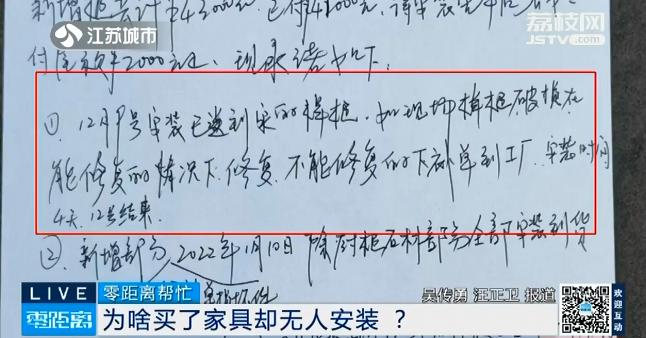 江苏城市
荔枝网
JSTV.com
付尾款2000元正，现承诺如下：
①、12月9号安装已送到家的橱柜，如现场橱柜破损在
能修复的情况下修复，不能修复的下补单到工厂，安装时间
4天，12号结束。
②、新增部分，2022年1月10日除厨柜石料部分全部安装到货
LIVE 零距离帮忙
吴传勇 汪正卫 报道
零距离
为啥买了家具却无人安装 ？
欢迎互动